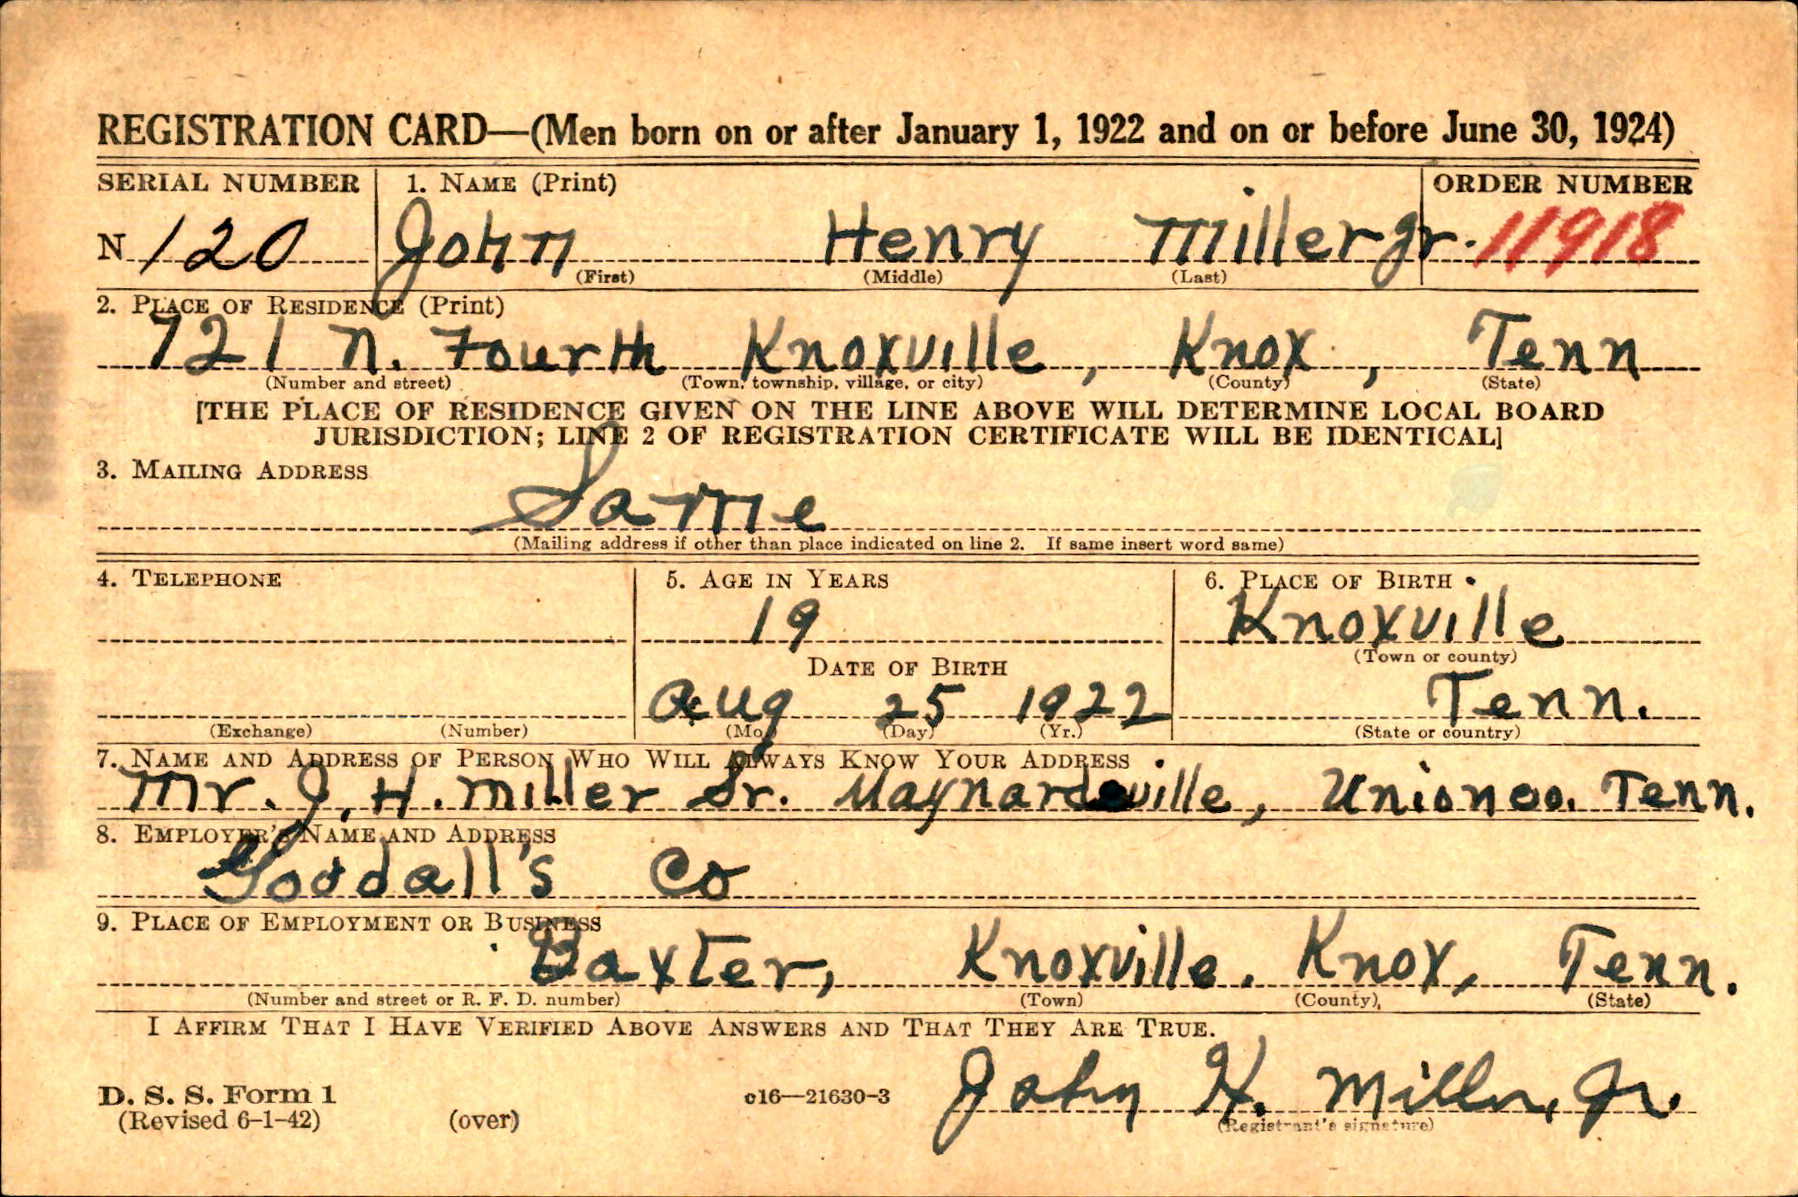 REGISTRATION CARD—(Men born on or after January 1, 1922 and on or before June 30, 1924)
SERIAL NUMBER 1. NAME (Print) ORDER NUMBER
N 120 John Henry Miller Jr. 11918
(First) (Middle) (Last)
2. PLACE OF RESIDENCE (Print)
721 N. Fourth Knoxville, Knox, Tenn
(Number and street) (Town, township, village, or city) (County) (State)
[THE PLACE OF RESIDENCE GIVEN ON THE LINE ABOVE WILL DETERMINE LOCAL BOARD
JURISDICTION; LINE 2 OF REGISTRATION CERTIFICATE WILL BE IDENTICAL]
3. MAILING ADDRESS
Same
(Mailing address if other than place indicated on line 2. If same insert word same)
4. TELEPHONE 5. AGE IN YEARS 6. PLACE OF BIRTH
19 Knoxville
DATE OF BIRTH (Town or county)
Aug 25 1922 Tenn.
(Exchange) (Number) (Mo.) (Day) (Yr.) (State or country)
7. NAME AND ADDRESS OF PERSON WHO WILL ALWAYS KNOW YOUR ADDRESS
Mr. J. H. Miller Sr. Maynardville, Union Co. Tenn.
8. EMPLOYER'S NAME AND ADDRESS
Goodall's Co
9. PLACE OF EMPLOYMENT OR BUSINESS
Baxter, Knoxville, Knox, Tenn.
(Number and street or R. F. D. number) (Town) (County) (State)
I AFFIRM THAT I HAVE VERIFIED ABOVE ANSWERS AND THAT THEY ARE TRUE.
John H. Miller, Jr.
D. S. S. Form 1 c16—21630-3
(Revised 6-1-42) (over) (Registrant's signature)